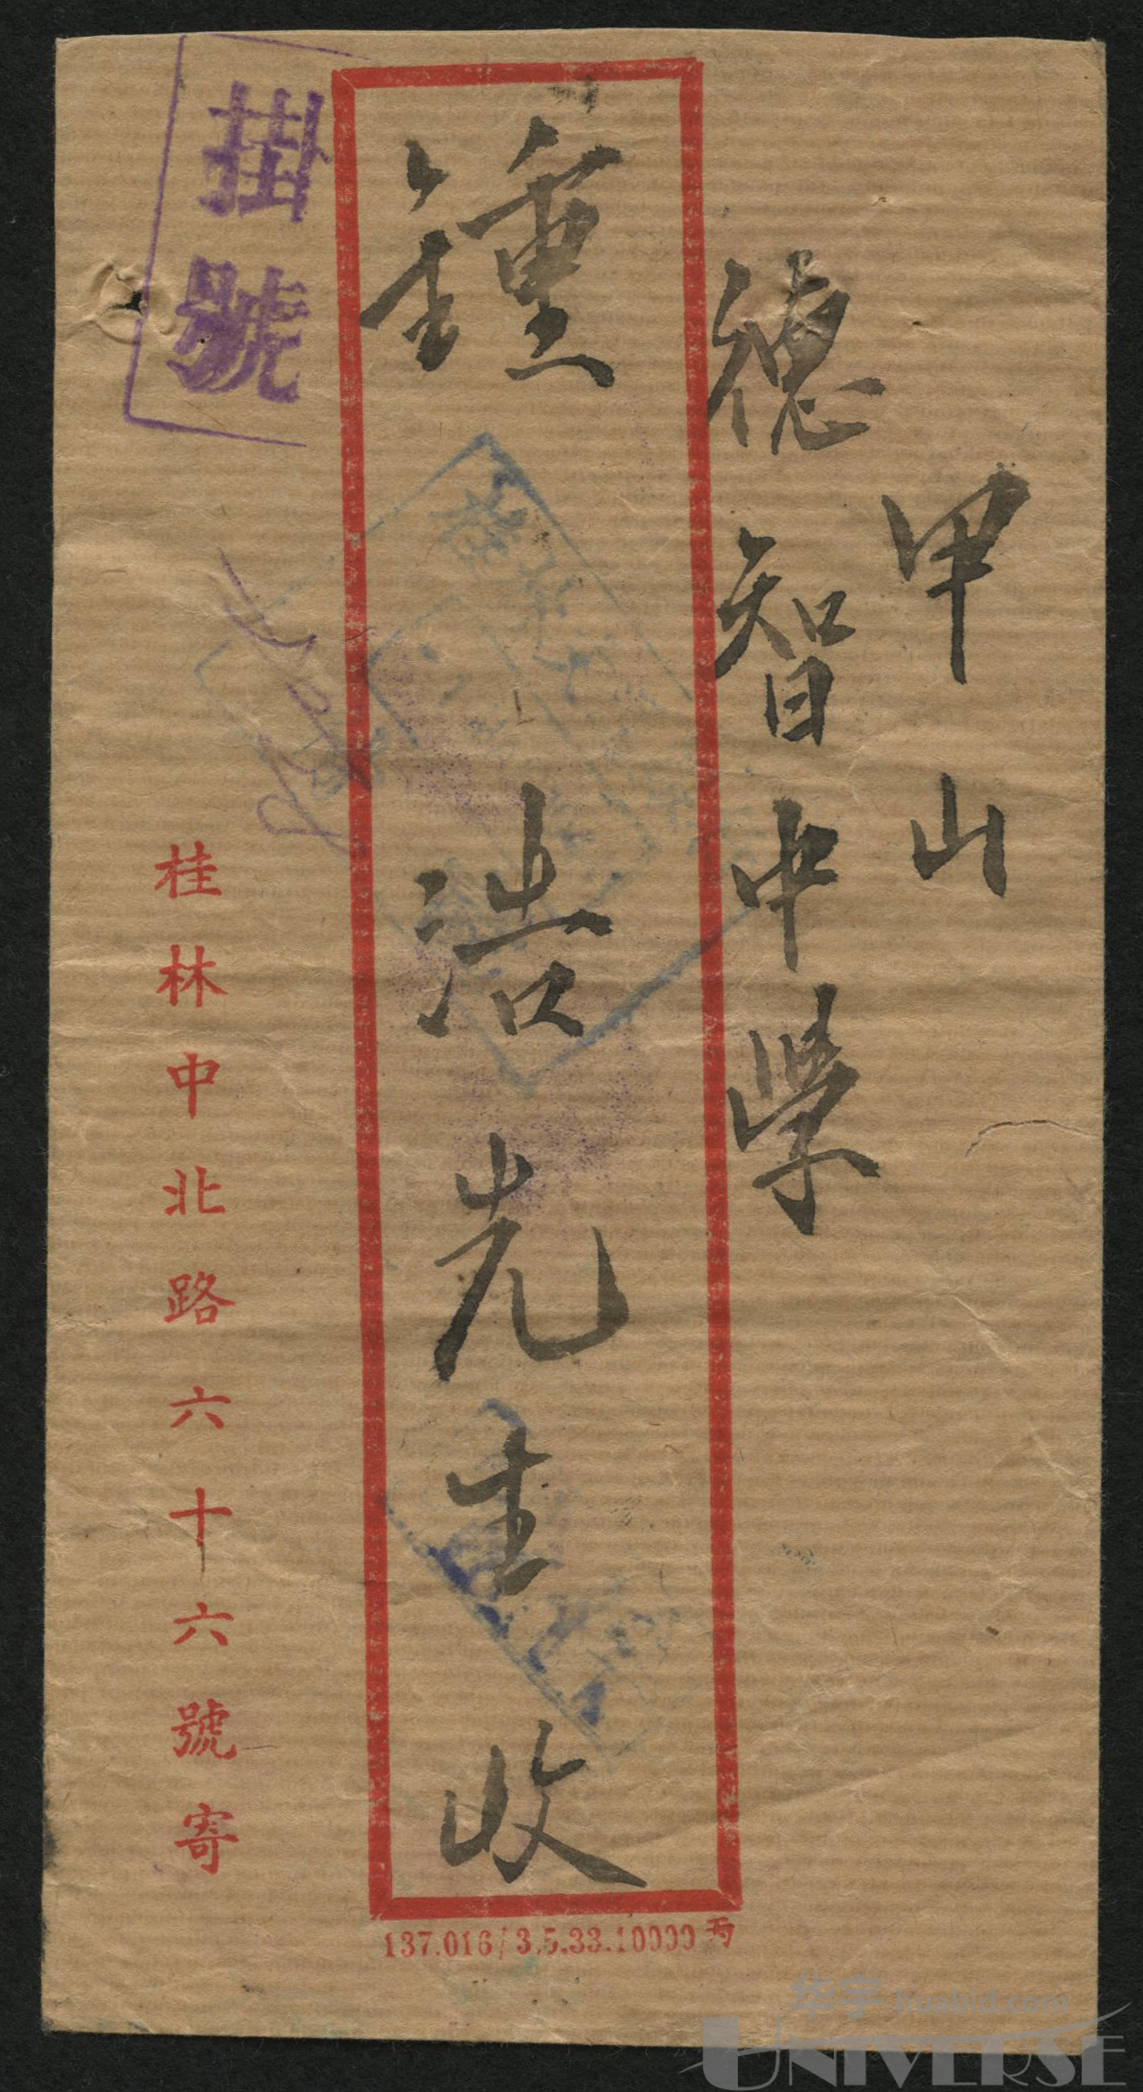 甲山
德智中学
鍾浩先生收
掛號
桂林中北路六十六號寄
137.016/3.5.33.10000丙
华宇 huabid.com
UNIVERSE